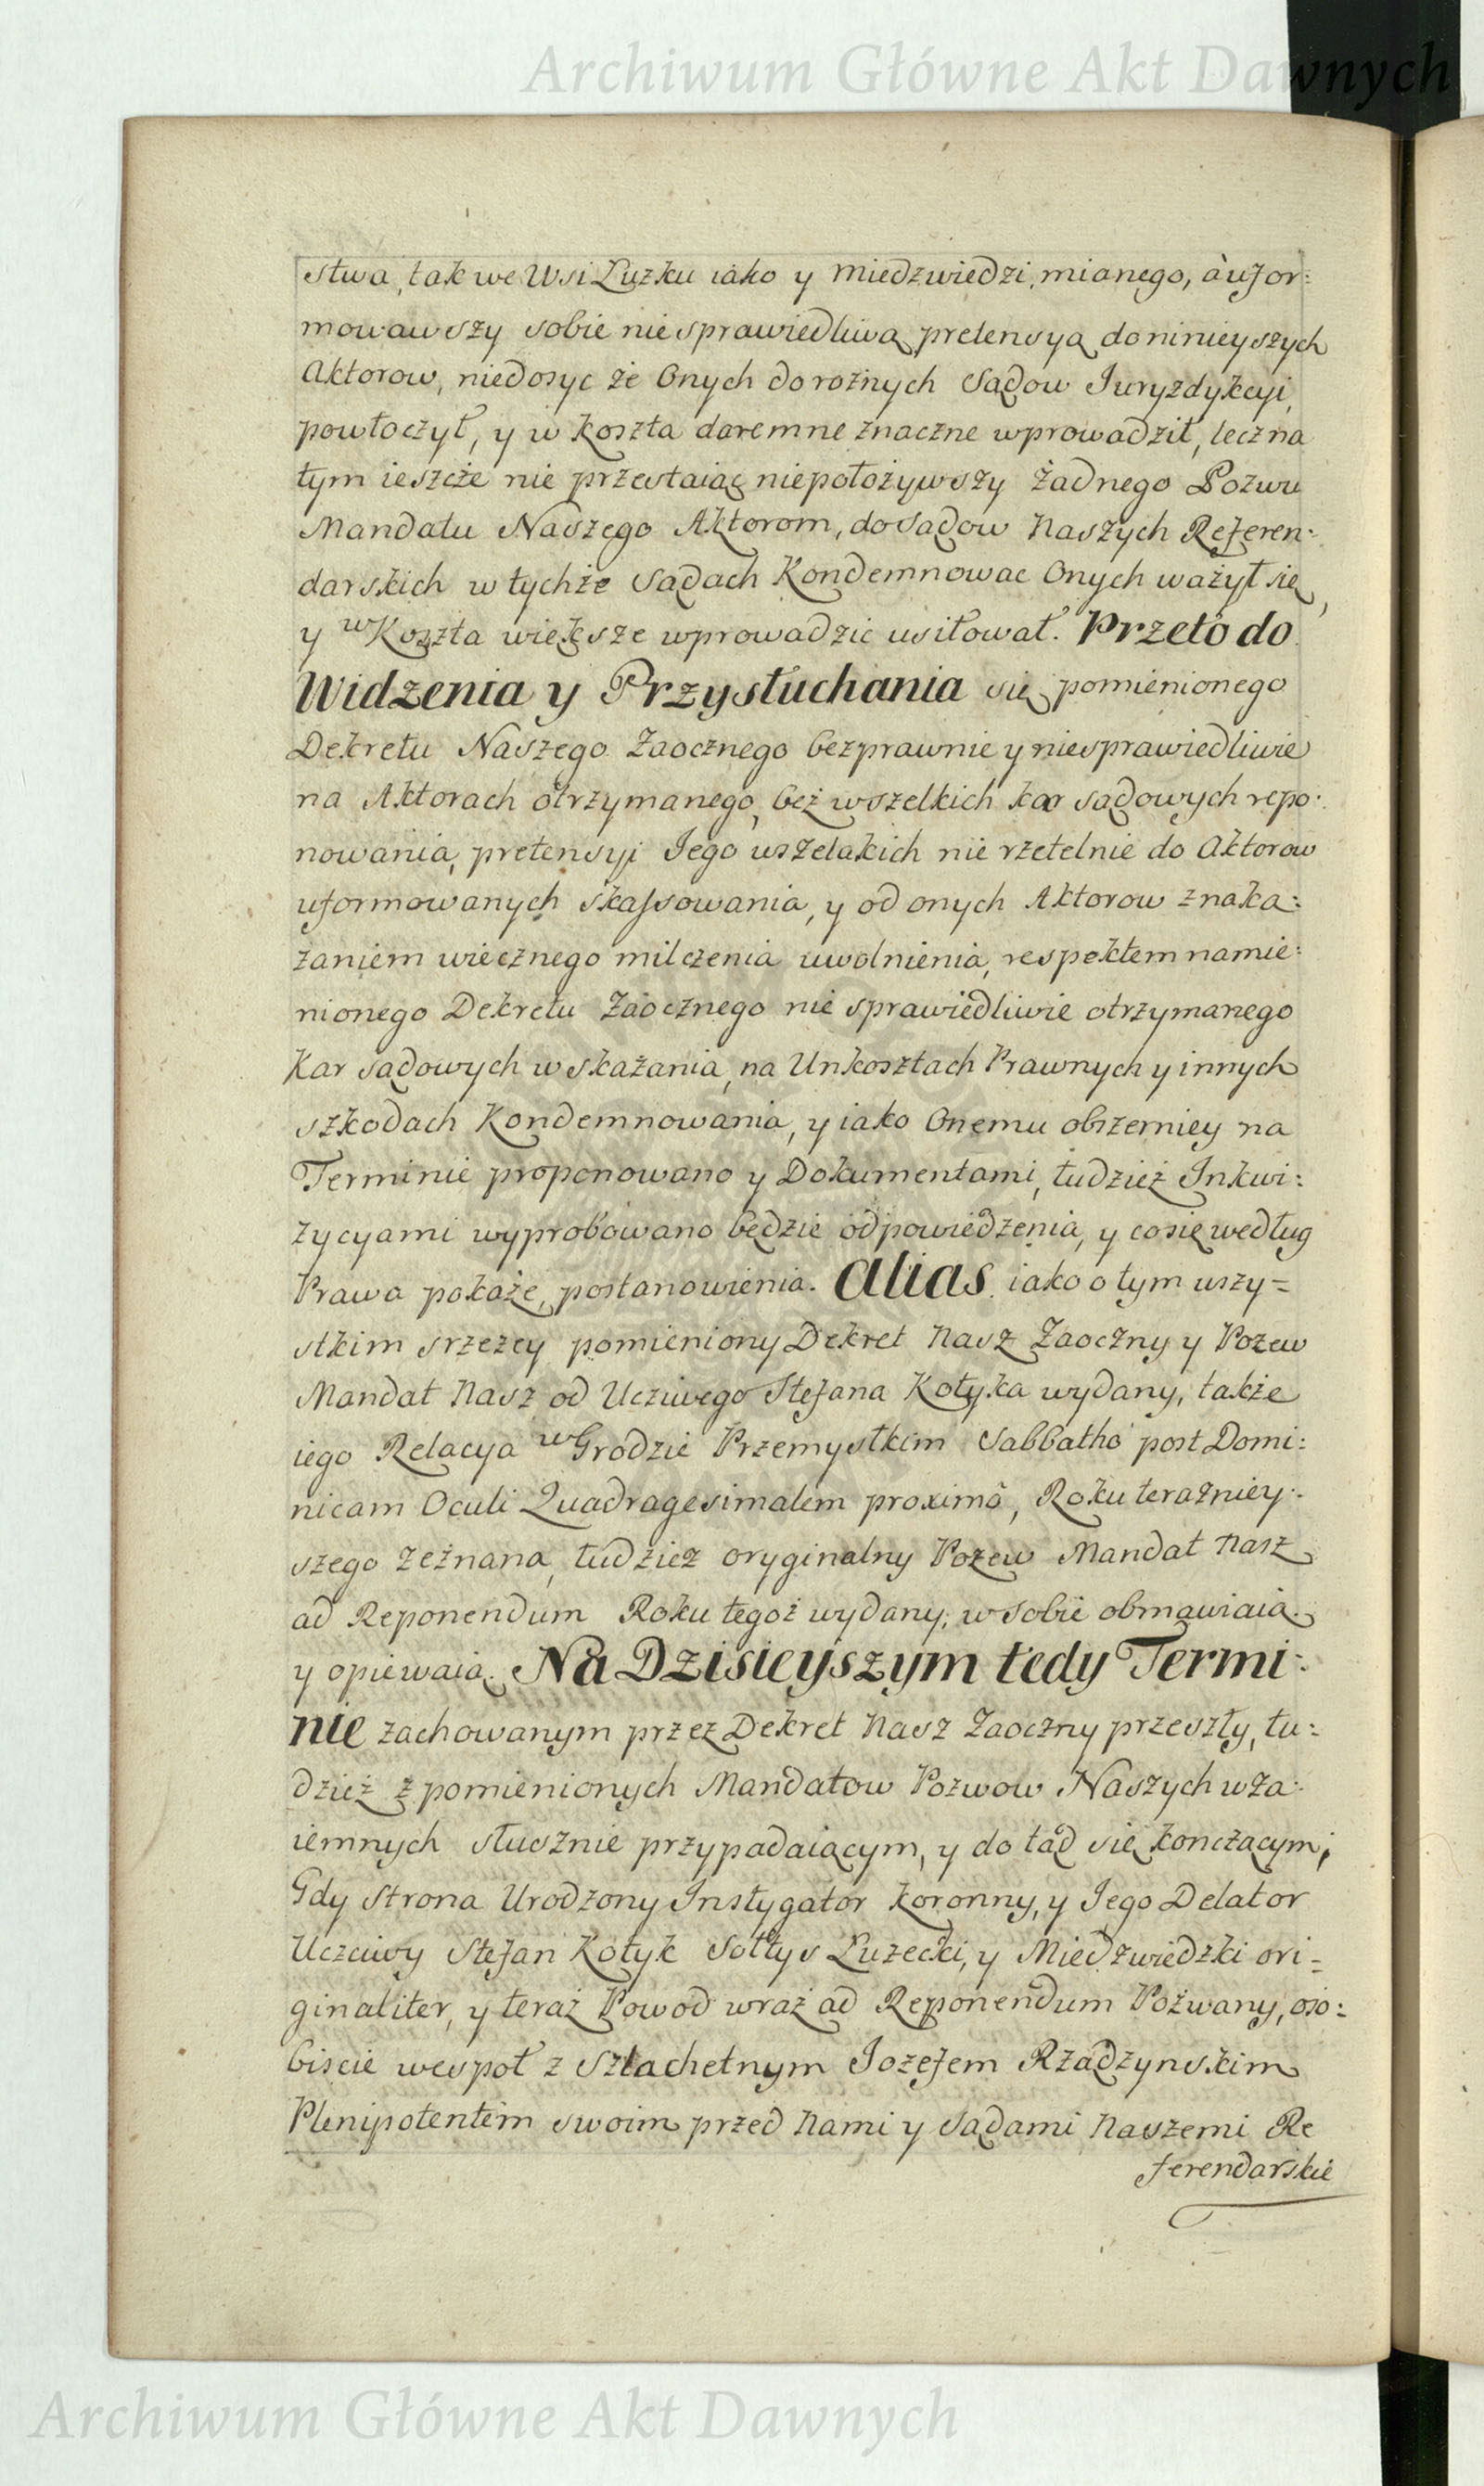 Archiwum Główne Akt Dawnych
stwa, tak we Wsi Luzku iako y Miedzwiedzi, mianego, à ufor:
mowawszy sobie niesprawiedliwą pretensyą do ninieyszych
Aktorow, niedosyc że Onych do rożnych Sądow Juryzdykcyi,
powłoczył, y w koszta daremne znaczne wprowadził, lecz na
tym ieszcże nie przestaiąc niepołożywszy żadnego Pozwu
Mandatu Naszego Aktorom, do Sądow Naszych Referen:
darskich w tychże Sądach Kondemnowac Onych ważył się,
y w Koszta więksże wprowadzić usiłował. Przeto do
Widzenia y Przysłuchania się pomienionego
Dekretu Naszego Zaocznego bezprawnie y niesprawiedliwie
na Aktorach otrzymanego, beż wszelkich kar sądowych repo:
nowania, pretensyi Jego wszelakich nie rzetelnie do Aktorow
uformowanych skassowania, y od onych Aktorow z naka:
żaniem wiecznego milczenia uwolnienia, respektem namie:
nionego Dekretu Zaocznego nie sprawiedliwie otrzymanego
Kar sądowych wskażania, na Unkosztach Prawnych y innych
szkodach Kondemnowania, y iako Onemu obszerniey na
Terminie proponowano y Dokumentami, tudzież Inkwi:
zycyami wyprobowano będzie odpowiedzenia, y co się według
Prawa pokaże, postanowienia. Alias iako o tym wszy=
stkim srzeżey pomieniony Dekret Nasz Zaoczny y Pozew
Mandat Nasz od Ucziwego Stefana Kotyka wydany, także
iego Relacya w Grodzie Przemyslkim Sabbatho post Domi:
nicam Oculi Quadragesimalem proximô, Roku terazniey:
szego zeżnana, tudziez oryginalny Pozew Mandat Nasz
ad Reponendum Roku tegoż wydany, w sobie obmawiaią
y opiewaią. Na Dzisieyszym tedy Termi:
nie zachowanym przez Dekret Nasz Zaoczny przeszły, tu:
dzież z pomienionych Mandatow Pozwow Naszych wza:
iemnych słusznie przypadaiącym, y do tąd się kończącym;
Gdy Strona Urodzony Instygator koronny, y Jego Delator
Uczciwy Stefan Kotyk Sołtys Luzecki, y Miedzwiedzki ori=
ginaliter, y teraż Powod wraż ad Reponendum Pozwany, oso:
biscie wespoł z Szlachetnym Iozefem Rządzynskim
Plenipotentem swoim przed Nami y Sądami Naszemi Re
ferendarskie
Archiwum Główne Akt Dawnych